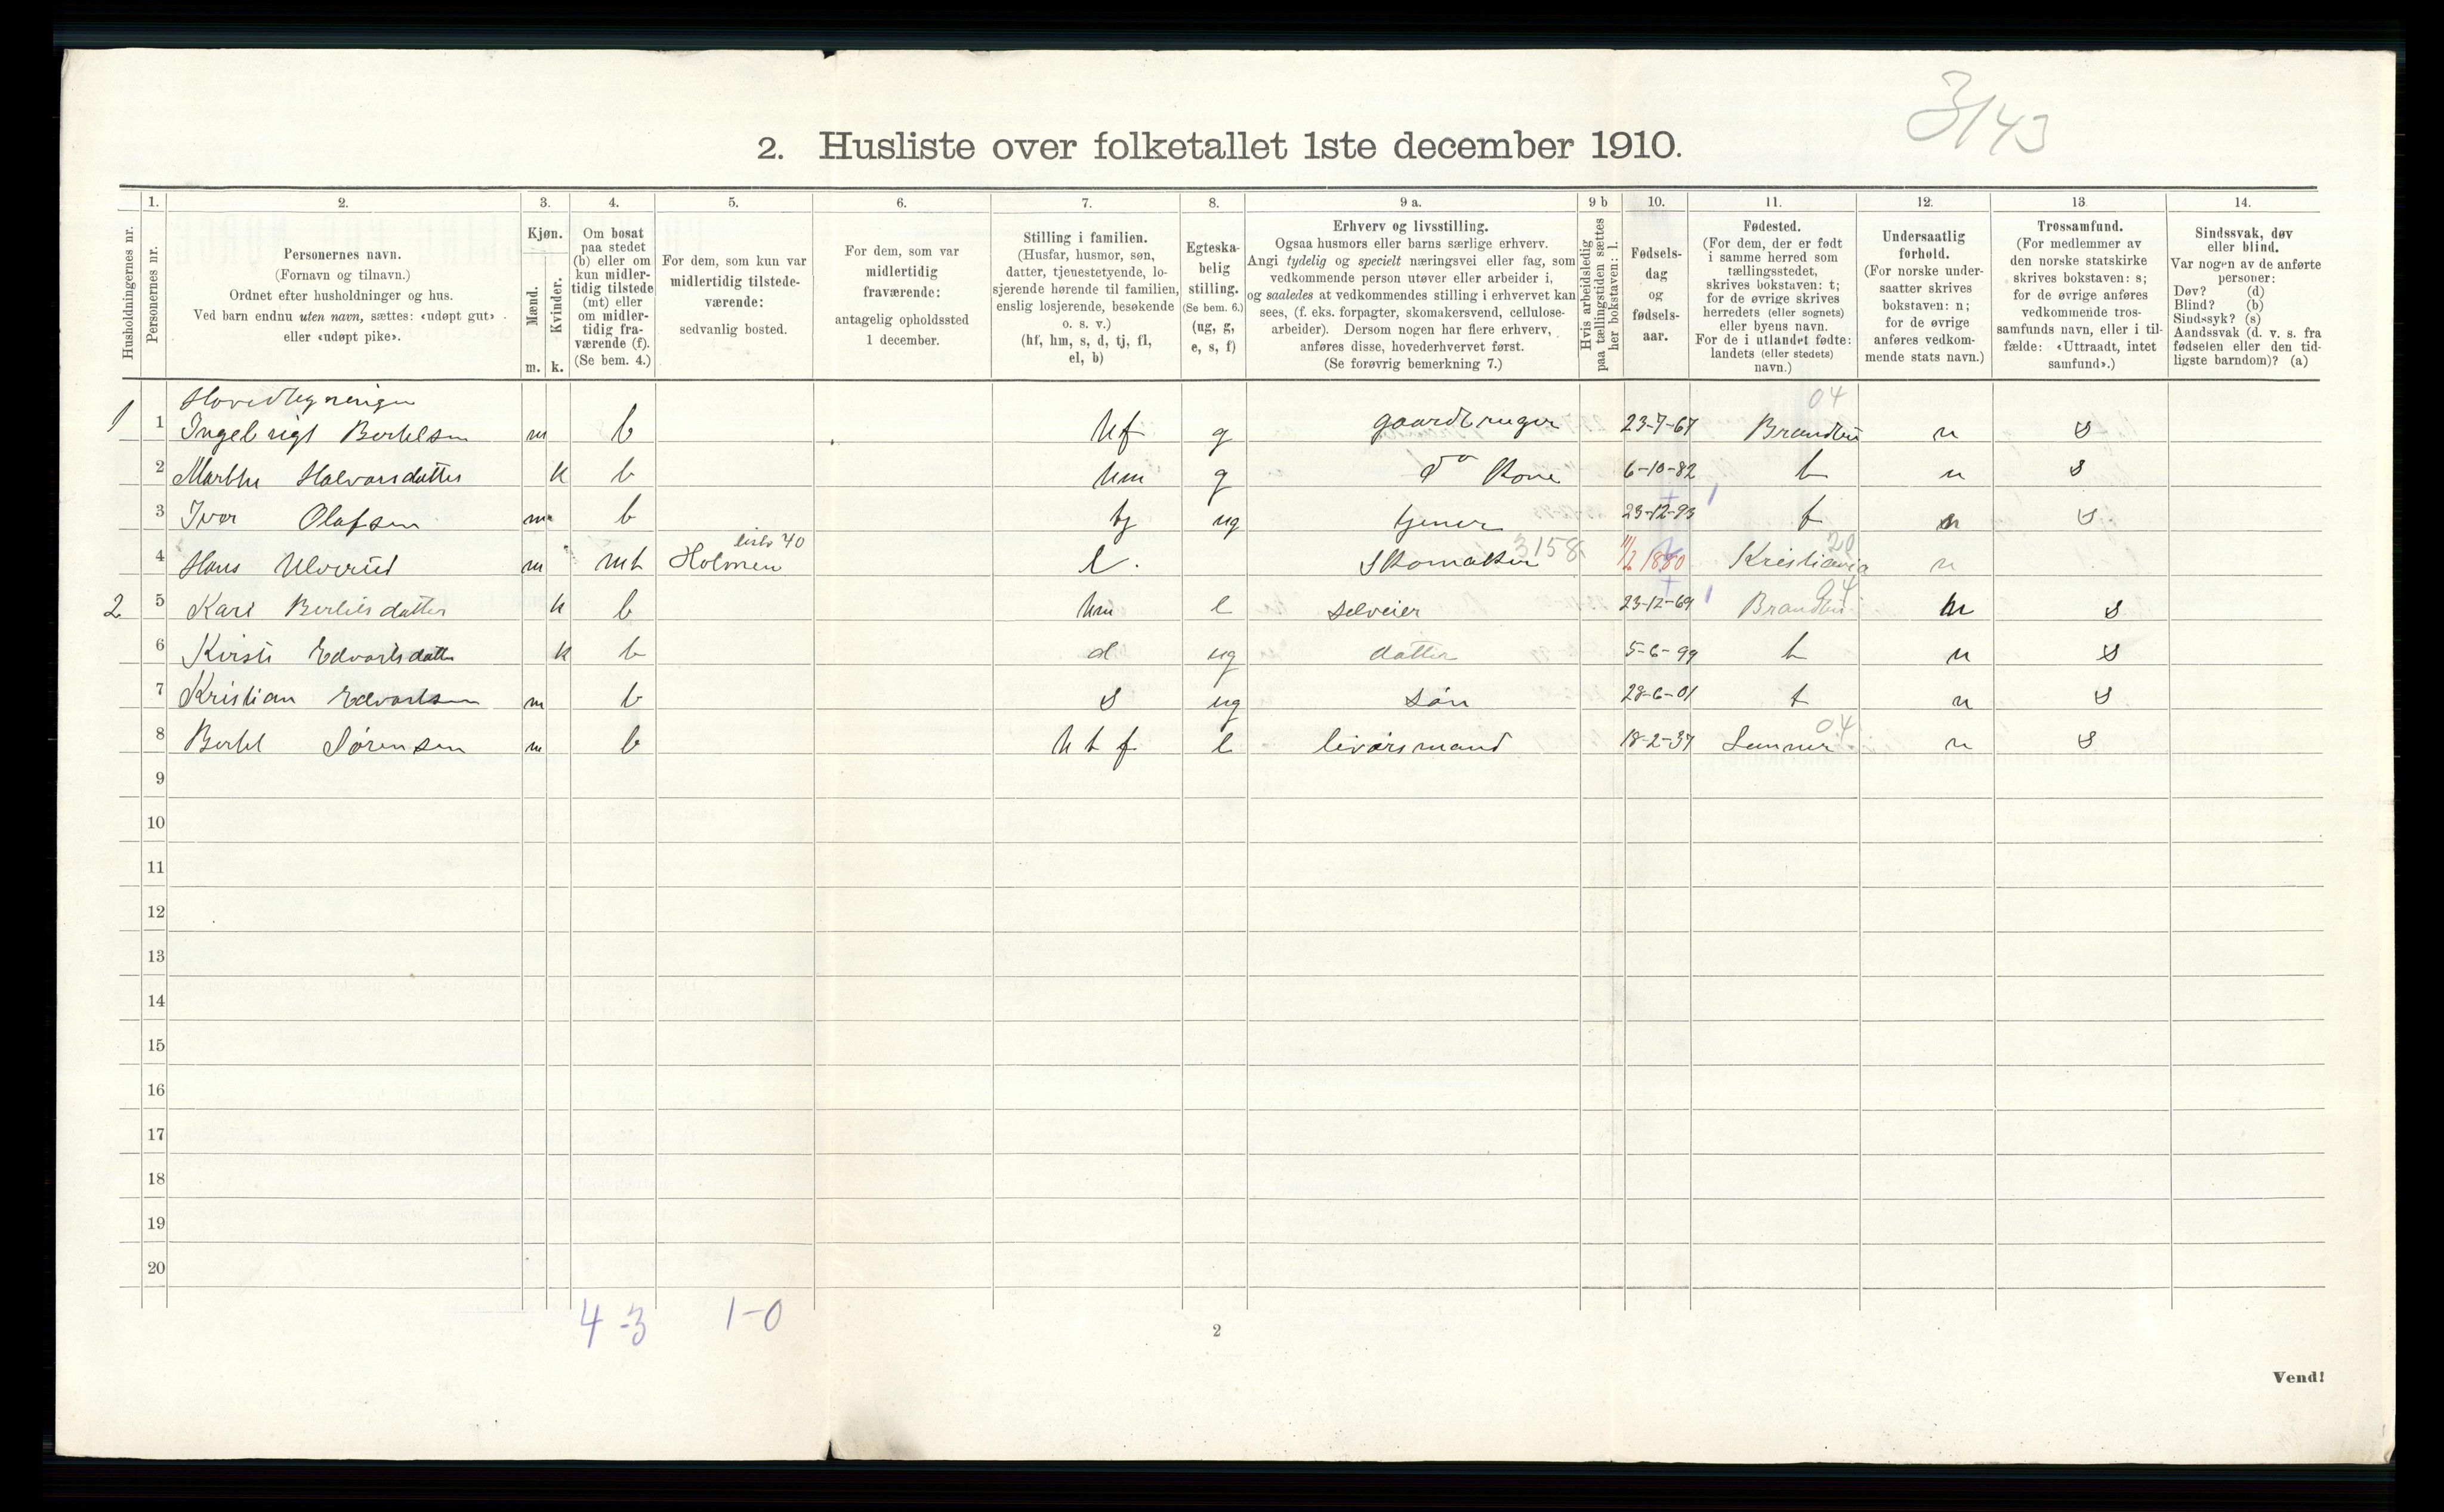 3143
2. Husliste over folketallet 1ste december 1910.
Husholdningernes nr.
1. Personernes nr.
2. Personernes navn.
(Fornavn og tilnavn.)
Ordnet efter husholdninger og hus.
Ved barn endnu uten navn, sættes: «udøpt gut»
eller «udøpt pike».
3. Kjøn.
Mænd. m.
Kvinder. k.
4. Om bosat
paa stedet
(b) eller om
kun midler-
tidig tilstede
(mt) eller
om midler-
tidig fra-
værende (f).
(Se bem. 4.)
5. For dem, som kun var
midlertidig tilstede-
værende:
sedvanlig bosted.
6. For dem, som var
midlertidig
fraværende:
antagelig opholdssted
1 december.
7. Stilling i familien.
(Husfar, husmor, søn,
datter, tjenestetyende, lo-
sjerende hørende til familien,
enslig losjerende, besøkende
o. s. v.)
(hf, hm, s, d, tj, fl,
el, b)
8. Egteska-
belig
stilling.
(Se bem. 6.)
(ug, g,
e, s, f)
9 a. Erhverv og livsstilling.
Ogsaa husmors eller barns særlige erhverv.
Angi tydelig og specielt næringsvei eller fag, som
vedkommende person utøver eller arbeider i,
og saaledes at vedkommendes stilling i erhvervet kan
sees, (f. eks. forpagter, skomakersvend, cellulose-
arbeider). Dersom nogen har flere erhverv,
anføres disse, hovederhvervet først.
(Se forøvrig bemerkning 7.)
9 b Hvis arbeidsledig
paa tællingstiden sættes
her bokstaven: l.
10. Fødsels-
dag
og
fødsels-
aar.
11. Fødested.
(For dem, der er født
i samme herred som
tællingsstedet,
skrives bokstaven: t;
for de øvrige skrives
herredets (eller sognets)
eller byens navn.
For de i utlandet fødte:
landets (eller stedets)
navn.)
12. Undersaatlig
forhold.
(For norske under-
saatter skrives
bokstaven: n;
for de øvrige
anføres vedkom-
mende stats navn.)
13. Trossamfund.
(For medlemmer av
den norske statskirke
skrives bokstaven: s;
for de øvrige anføres
vedkommende tros-
samfunds navn, eller i til-
fælde: «Uttraadt, intet
samfund».)
14. Sindssvak, døv
eller blind.
Var nogen av de anførte
personer:
Døv? (d)
Blind? (b)
Sindssyk? (s)
Aandssvak (d. v. s. fra
fødselen eller den tid-
ligste barndom)? (a)
Hovedbygningen 04
1 1 Ingebrigt Bertelsen m b hf g gaardbruger 23-7-67 Brandbu n s
2 Marthe Halvorsdatter k b hm g do Kone 6-10-82 t n s
3 Iver Olafsen m b tj ug tjener 23-12-93 t n s
liste 40 3158 20
4 Hans Ulverud m mt Holmen l. Skomaker 11/2 1880 Kristiania n
04
2 5 Kari Bertelsdatter k b hm e selveier 23-12-69 Brandbu n s
6 Kirsti Edvartsdatter k b d ug datter 5-6-99 t n s
7 Kristian Edvartsen m b s ug søn 28-6-01 t n s
04
8 Bertel Sørensen m b h t f e livørsmand 18-2-37 Lunner n s
9
10
11
12
13
14
15
16
17
18
19
20
4-3 1-0
2
Vend!